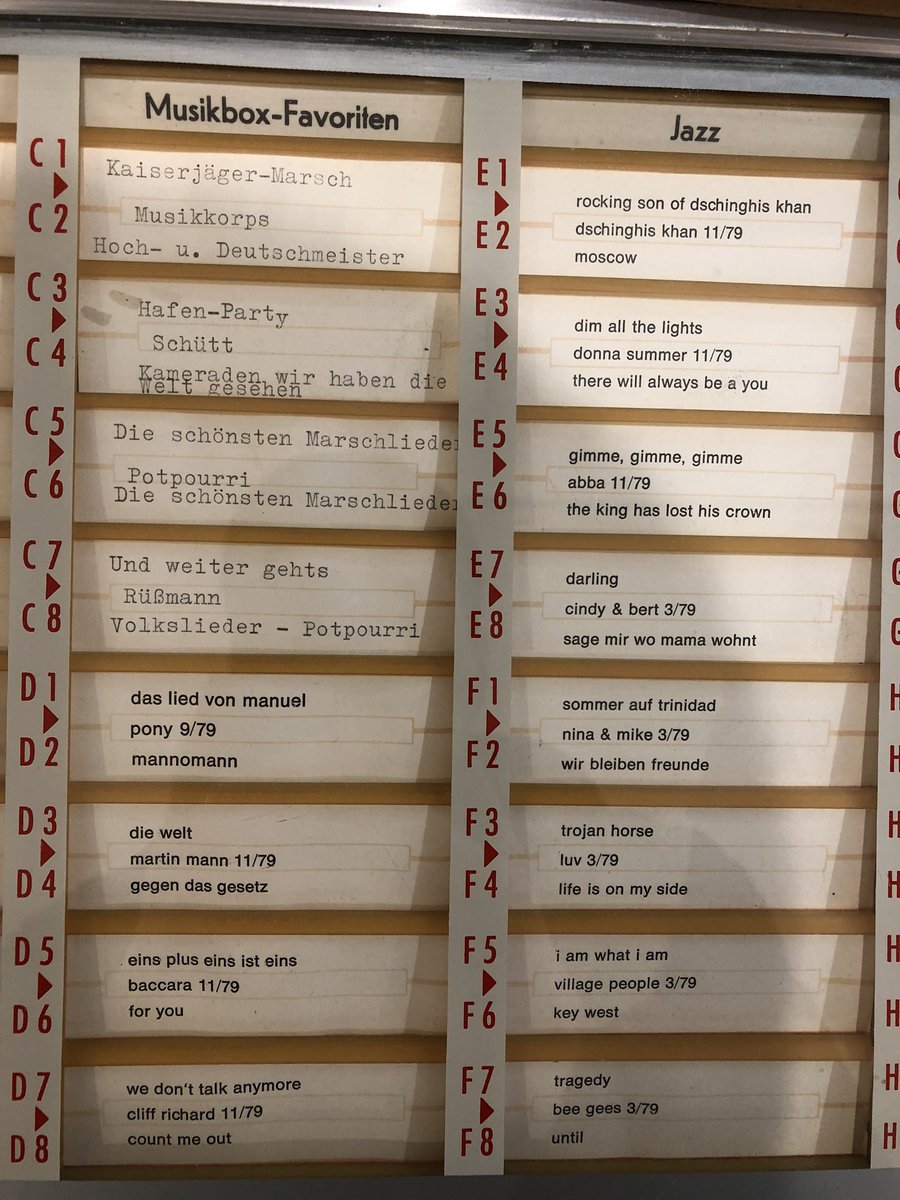 Musikbox-Favoriten
C 1
C 2
Kaiserjäger-Marsch
Musikkorps
Hoch- u. Deutschmeister
C 3
C 4
Hafen-Party
Schütt
Kameraden wir haben die
Welt gesehen
C 5
C 6
Die schönsten Marschlieder
Potpourri
Die schönsten Marschlieder
C 7
C 8
Und weiter gehts
Rüßmann
Volkslieder - Potpourri
D 1
D 2
das lied von manuel
pony 9/79
mannomann
D 3
D 4
die welt
martin mann 11/79
gegen das gesetz
D 5
D 6
eins plus eins ist eins
baccara 11/79
for you
D 7
D 8
we don't talk anymore
cliff richard 11/79
count me out
Jazz
E 1
E 2
rocking son of dschinghis khan
dschinghis khan 11/79
moscow
E 3
E 4
dim all the lights
donna summer 11/79
there will always be a you
E 5
E 6
gimme, gimme, gimme
abba 11/79
the king has lost his crown
E 7
E 8
darling
cindy & bert 3/79
sage mir wo mama wohnt
F 1
F 2
sommer auf trinidad
nina & mike 3/79
wir bleiben freunde
F 3
F 4
trojan horse
luv 3/79
life is on my side
F 5
F 6
i am what i am
village people 3/79
key west
F 7
F 8
tragedy
bee gees 3/79
until